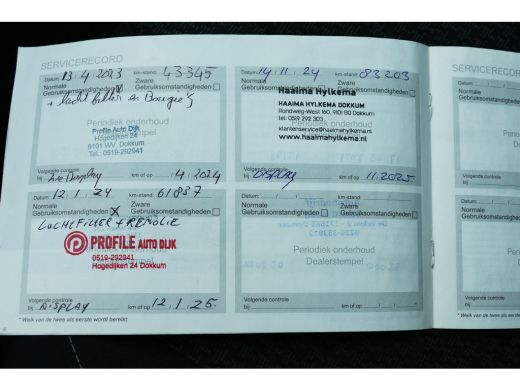 SERVICERECORD
Datum: 13.4.2023 km-stand: 43345
Normale Gebruiksomstandigheden
Zware Gebruiksomstandigheden
+ Lucht filter en Bougie's
Periodiek onderhoud
Profile Auto Dijk
Hogedijken 24
9101 WV Dokkum
Tel.: 0519-292941
Volgende controle
bij Zie Display km of op 4.2024
Datum: 12.1.24 km-stand: 61837
Normale Gebruiksomstandigheden
Zware Gebruiksomstandigheden
LUCHTFILTER + REMOLIE
PROFILE AUTO DIJK
0519-292941
Hogedijken 24 Dokkum
Dealerstempel
Volgende controle
bij DISPLAY km of op 12.1.25.
* Welk van de twee als eerste wordt bereikt.
Datum: 14.11.24 km-stand: 83203
Normale Gebruiksomstandigheden
Zware Gebruiksomstandigheden
Haaima Hylkema
HAAIMA HYLKEMA DOKKUM
Rondweg-West 160, 9101 BD Dokkum
tel. 0519 292 303
klantenservice@haaimahylkema.nl
www.haaimahylkema.nl
Volgende controle
bij Display km of op 11.2025
Datum: km-stand:
Normale Gebruiksomstandigheden
Zware Gebruiksomstandigheden
Periodiek onderhoud
Dealerstempel
Volgende controle
bij km of op
* Welk van de twee als eerste wordt bereikt.
SERVICERECORD
Datum:
Normale
Gebruiksomstandigheden
Volgende controle
bij
Datum:
Normale
Gebruiksomstandigheden
Volgende controle
bij
* Welk van de twee